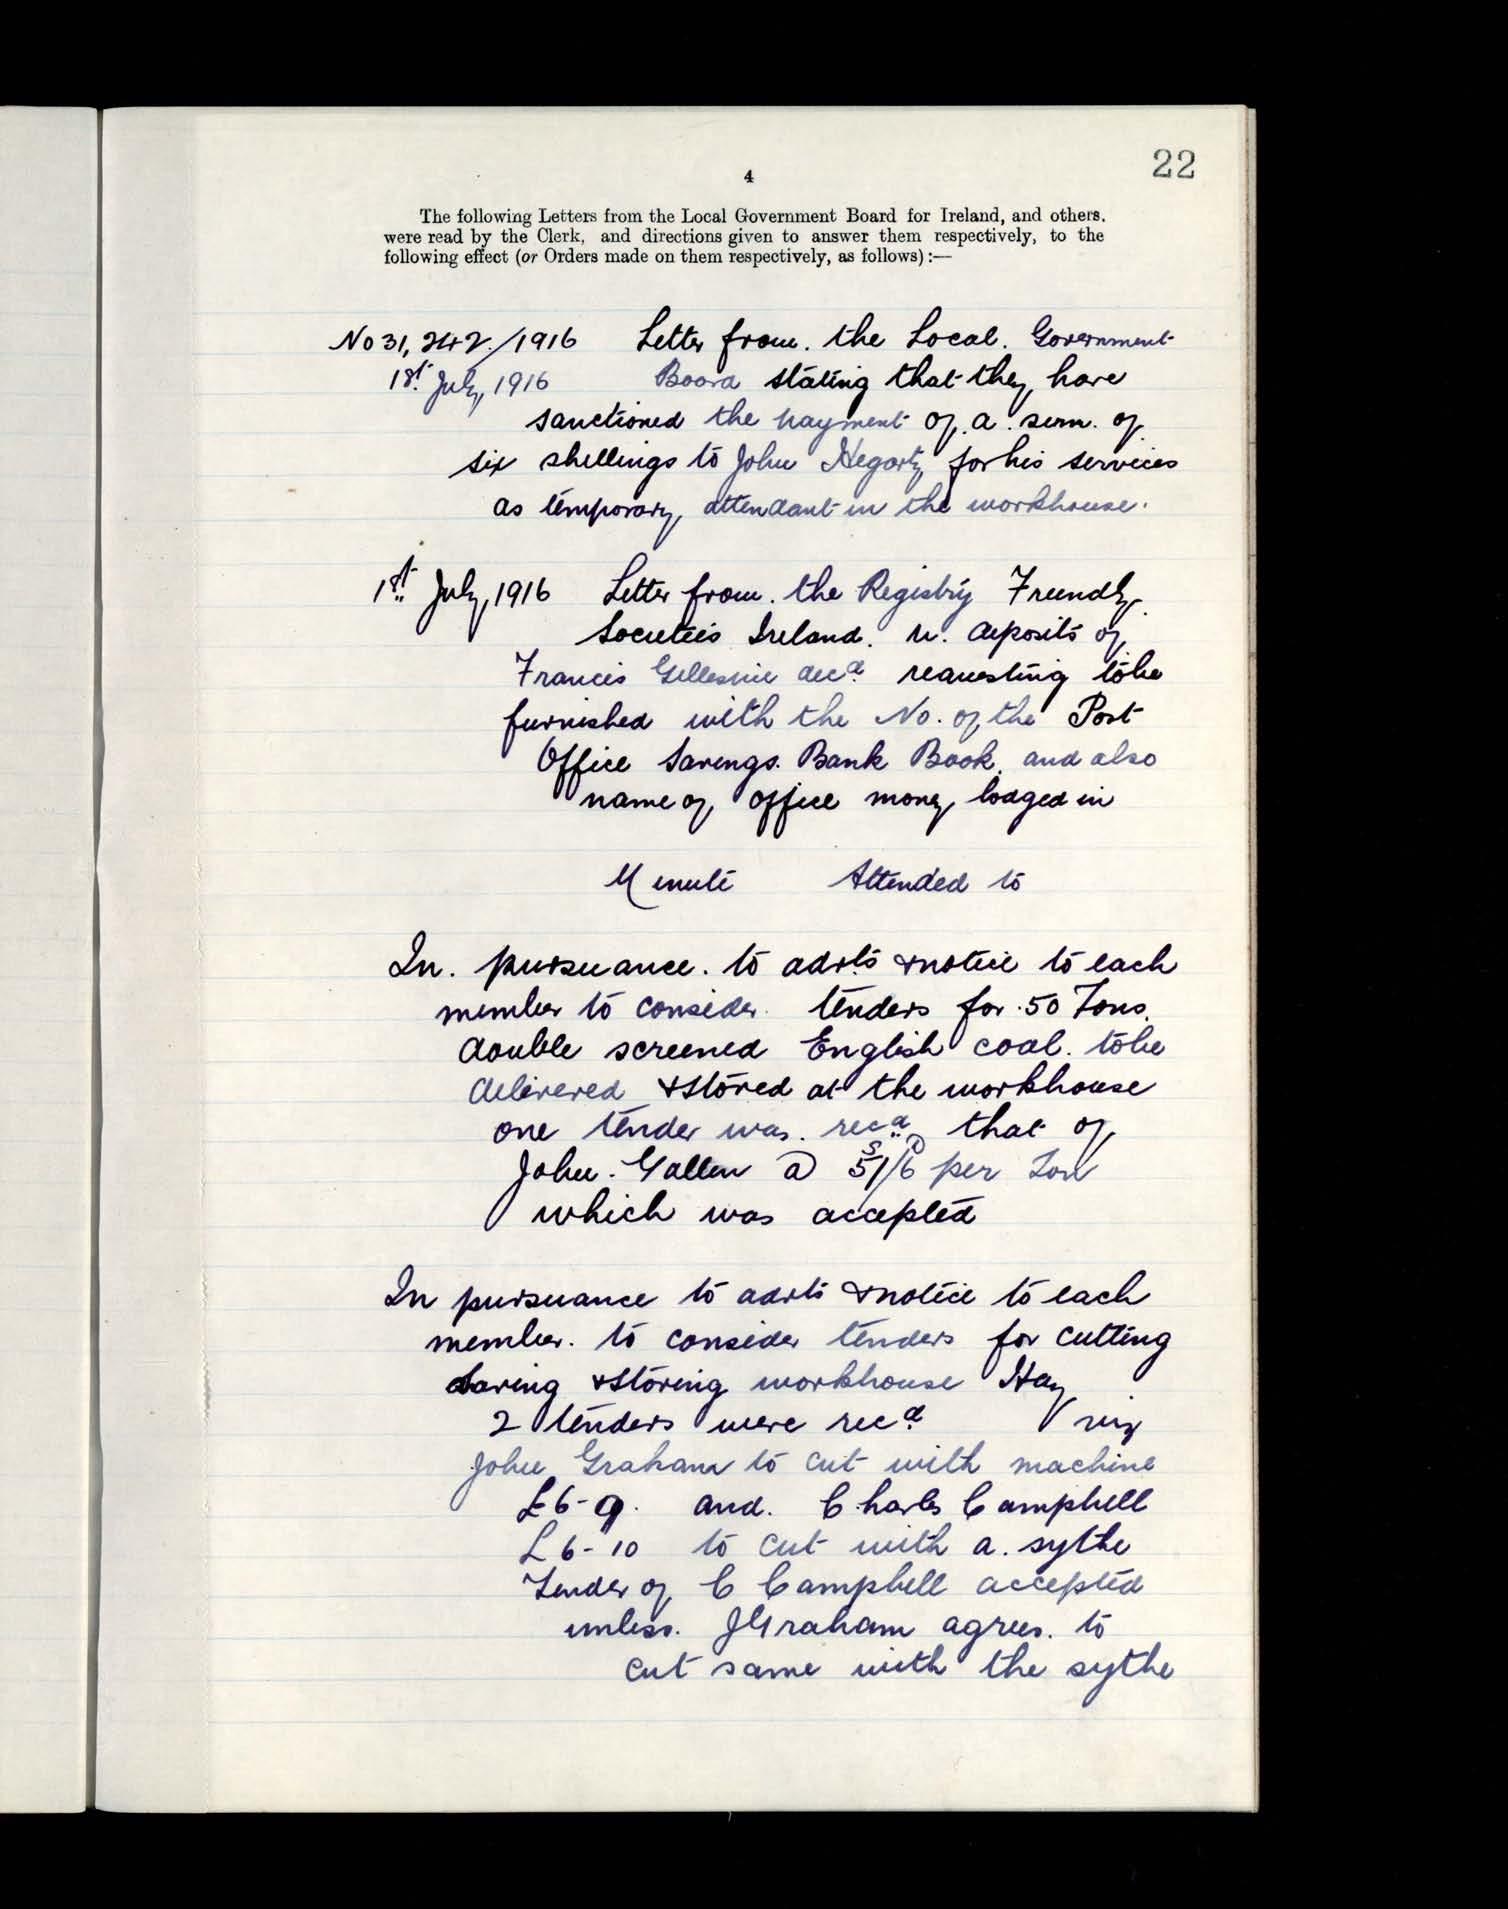 22
4
The following Letters from the Local Government Board for Ireland, and others,
were read by the Clerk, and directions given to answer them respectively, to the
following effect (or Orders made on them respectively, as follows):—
No 31,242/1916 Letter from the Local Government
1st July, 1916 Board stating that they have
sanctioned the payment of a sum of
six shillings to John Hegarty for his services
as temporary attendant in the workhouse.
1st July, 1916 Letter from the Registry Friendly
Societies Ireland. re. deposits of
Francis Gillespie decd. requesting to be
furnished with the No. of the Post
Office Savings Bank Book and also
name of office money lodged in
Minute Attended to
In pursuance to advts & notice to each
member to consider tenders for 50 Tons
double screened English coal to be
delivered & stored at the workhouse
one tender was recd that of
John Gallen @ 51s/6d per Ton
which was accepted
In pursuance to advts & notice to each
member to consider tenders for cutting
saving & storing workhouse Hay
2 tenders were recd viz
John Graham to cut with machine
£6-9. and Charles Campbell
£6-10 to cut with a sythe
Tender of C Campbell accepted
unless J Graham agrees to
cut same with the sythe